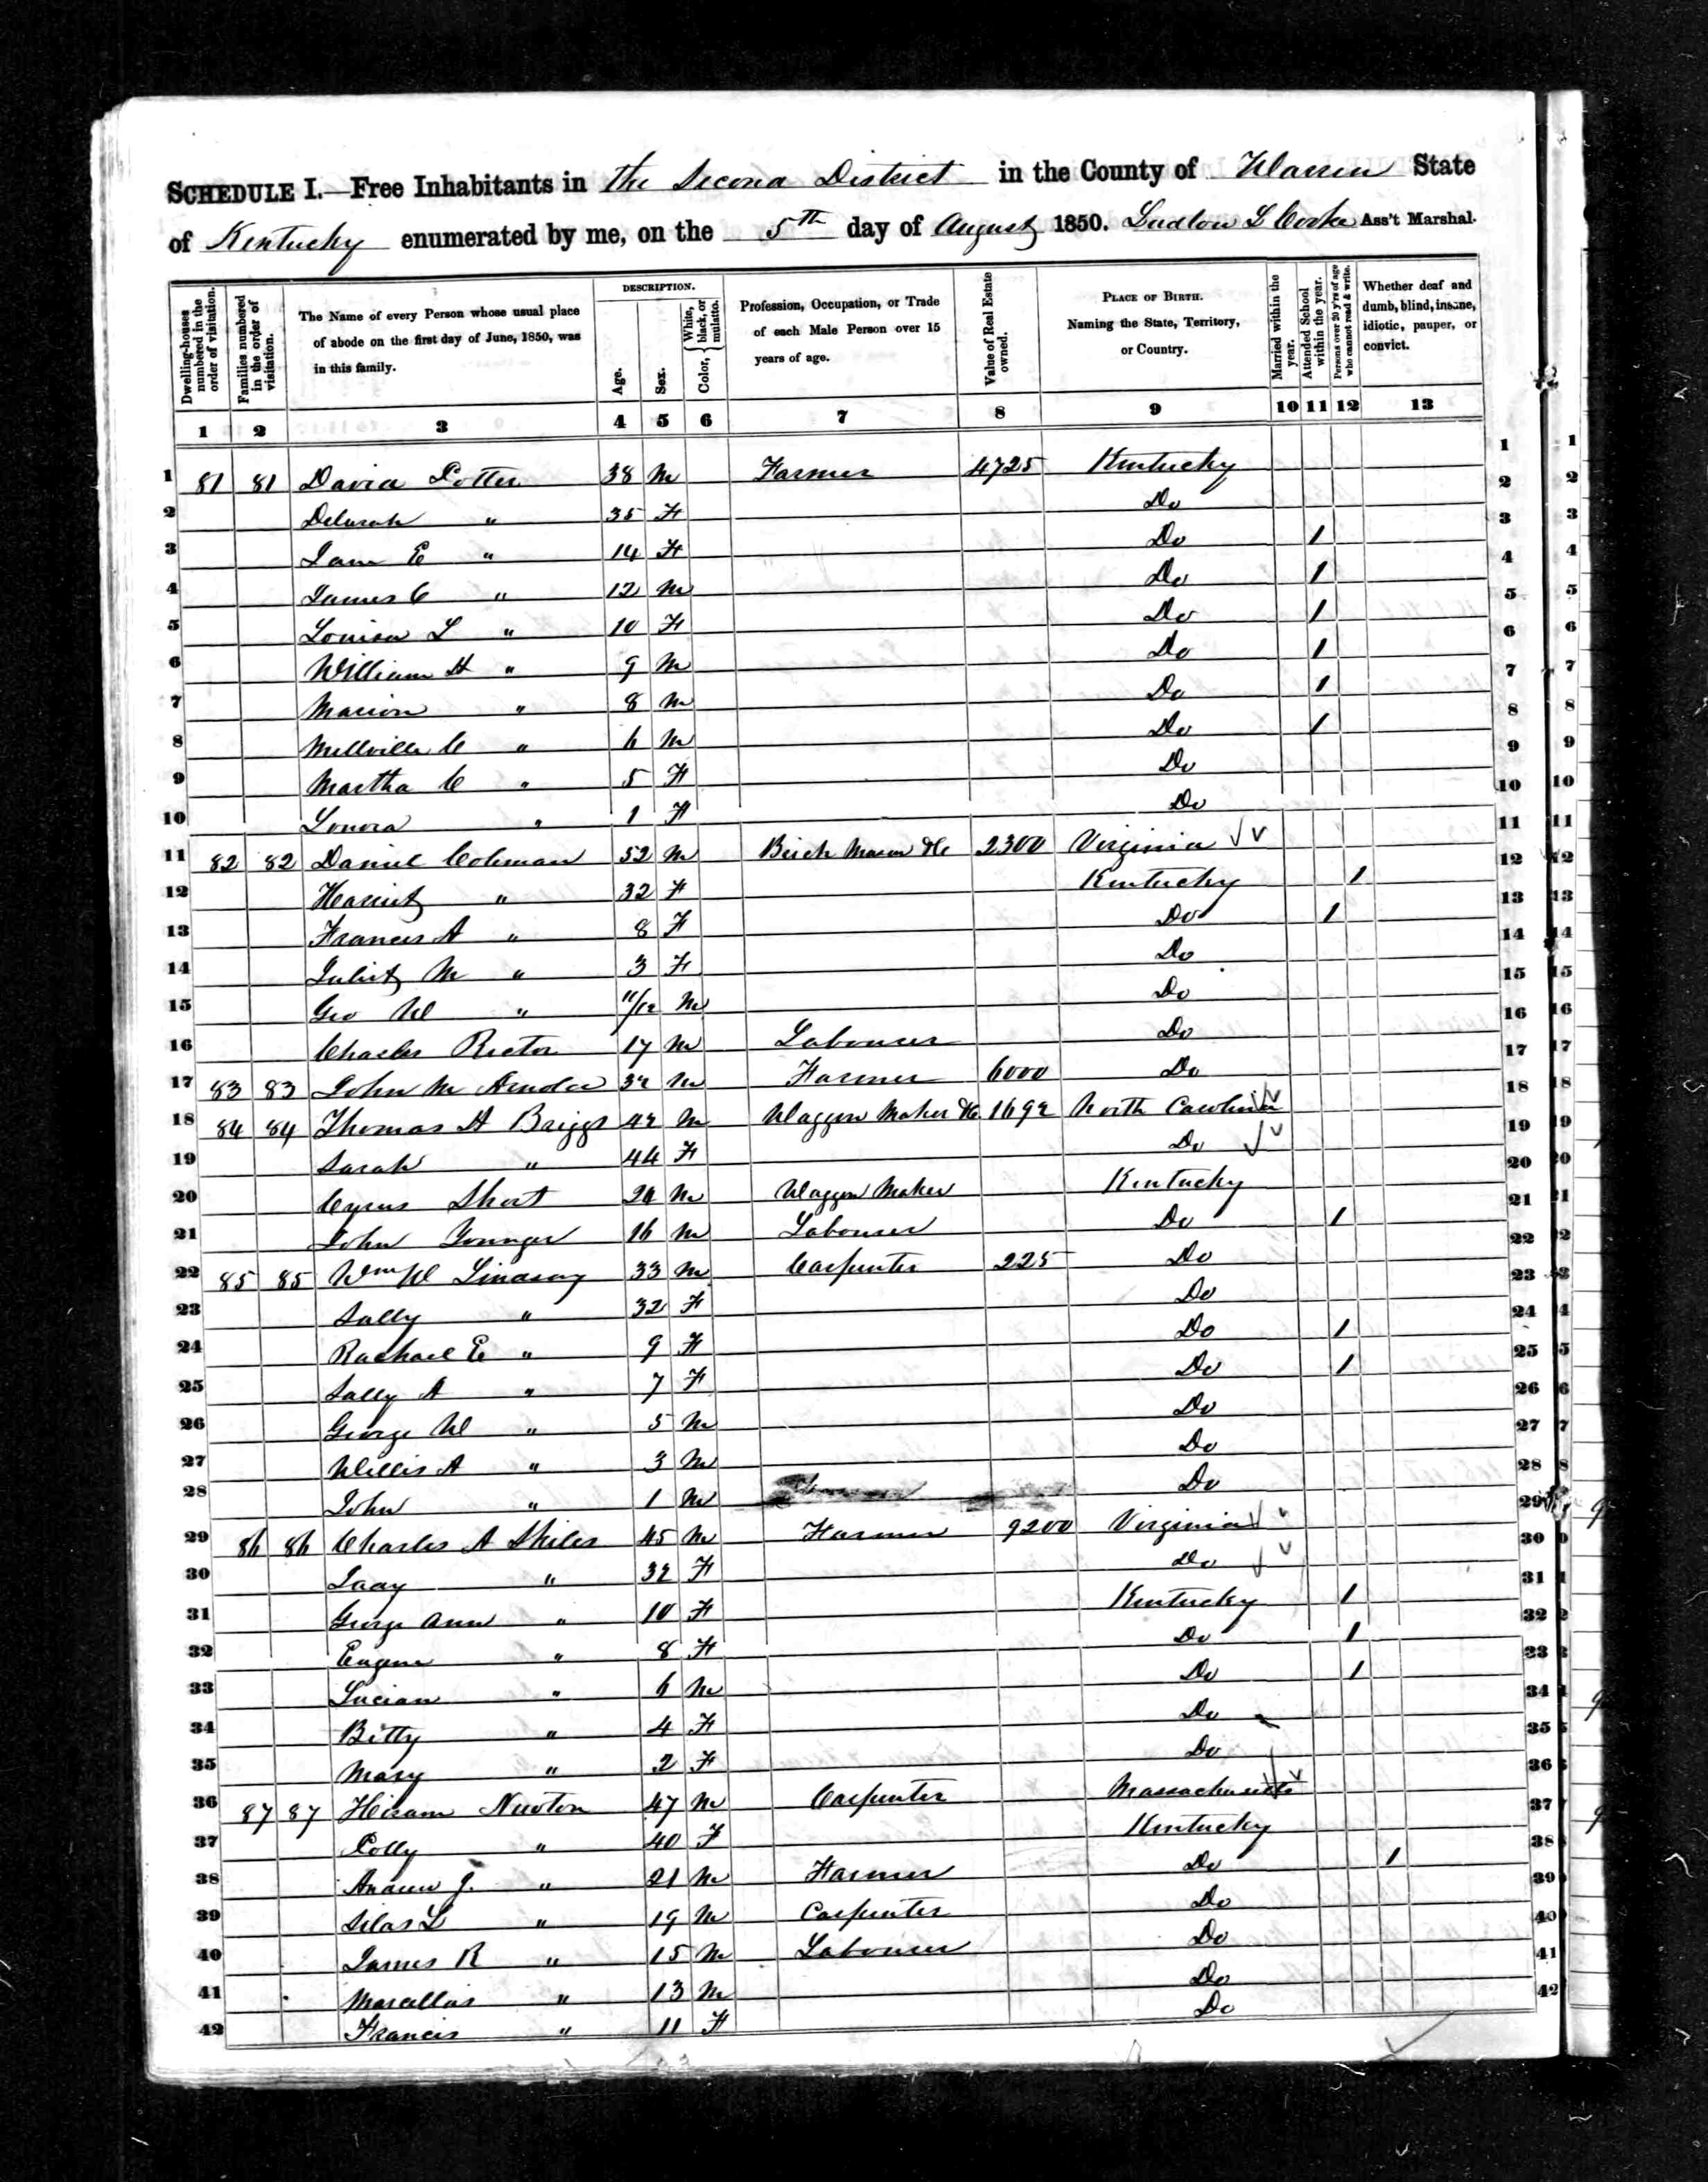 SCHEDULE I.—Free Inhabitants in the Second District in the County of Warren State
of Kentucky enumerated by me, on the 5th day of August 1850. Ludlow L Cooke Ass't Marshal.
Dwelling-houses numbered in the order of visitation.
Families numbered in the order of visitation.
The Name of every Person whose usual place of abode on the first day of June, 1850, was in this family.
DESCRIPTION.
Age.
Sex.
Color, { White, black, or mulatto.
Profession, Occupation, or Trade of each Male Person over 15 years of age.
Value of Real Estate owned.
PLACE OF BIRTH. Naming the State, Territory, or Country.
Married within the year.
Attended School within the year.
Persons over 20 y'rs of age who cannot read & write.
Whether deaf and dumb, blind, insane, idiotic, pauper, or convict.
1 2 3 4 5 6 7 8 9 10 11 12 13
1 81 81 David Potter 38 M Farmer 4725 Kentucky 1
2 Deborah " 35 F Do 2
3 Jane E " 14 F Do 1 3
4 James C " 12 M Do 1 4
5 Louisa L " 10 F Do 1 5
6 William H " 9 M Do 1 6
7 Marion " 8 M Do 1 7
8 Mellville C " 6 M Do 1 8
9 Martha C " 5 F Do 9
10 Lonora " 1 F Do 10
11 82 82 Daniel Coleman 52 M Brick Mason &c 2300 Virginia 11
12 Harriet " 32 F Kentucky 1 12
13 Francis A " 8 F Do 1 13
14 Juliet M " 3 F Do 14
15 Geo W " 11/12 M Do 15
16 Charles Rector 17 M Labourer Do 16
17 83 83 John M 32 M Farmer 6000 Do 17
18 84 84 Thomas H Briggs 42 M Waggon Maker &c 1692 North Carolina 18
19 Sarah " 44 F Do 19
20 Cyrus Short M Waggon Maker Kentucky 20
21 John Younger 16 M Labourer Do 1 21
22 85 85 Wm W Lindsay 33 M Carpenter 225 Do 22
23 Sally " 32 F Do 23
24 Rachael E " 9 F Do 1 24
25 Sally A " 7 F Do 1 25
26 George W " 5 M Do 26
27 Willis A " 3 M Do 27
28 John " 1 M Do 28
29 86 86 Charles A Shiles 45 M Farmer 9200 Virginia 29
30 " 32 F Do 30
31 George Ann " 10 F Kentucky 1 31
32 Eugene " 8 F Do 1 32
33 Lucian " 6 M Do 1 33
34 Bitty " 4 F Do 34
35 Mary " 2 F Do 35
36 87 87 Hiram Newton 47 M Carpenter Massachusetts 36
37 Polly " 40 F Kentucky 37
38 Andrew J. " 21 M Farmer Do 1 38
39 Silas L " 19 M Carpenter Do 39
40 James R " 15 M Labourer Do 40
41 Marcellas " 13 M Do 41
42 Francis " 11 F Do 42